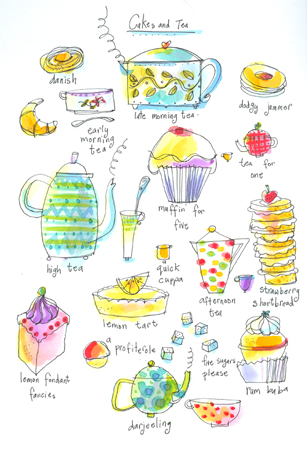 Cakes and Tea
danish
late morning tea
dodgy jammer
early
morning
tea
tea for
one
muffin for
five
high tea
quick
cuppa
afternoon
tea
strawberry
shortbread
lemon tart
a
profiterole
five sugars
please
lemon fondant
fancies
rum baba
darjeeling